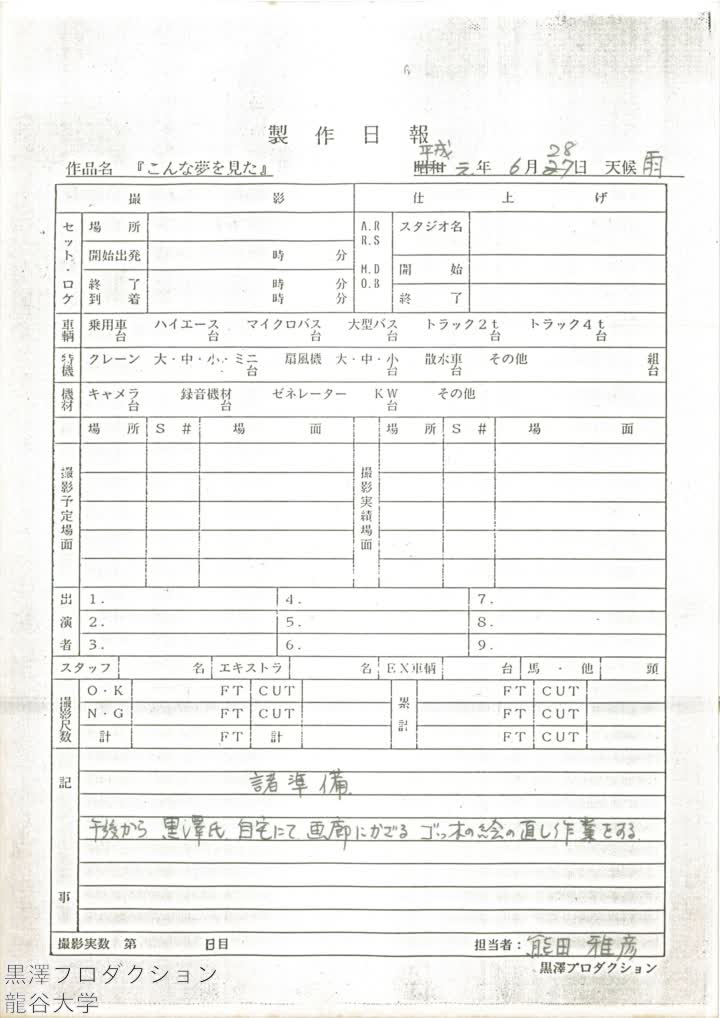 製作日報
作品名 『こんな夢を見た』 昭和 平成 元年 6月 27 28日 天候 雨
撮影 仕上げ
セット・ロケ 場所 A.R R.S スタジオ名
開始出発 時 分 M.D O.B 開始
終了 時 分 終了
到着 時 分
車輌 乗用車 台 ハイエース 台 マイクロバス 台 大型バス 台 トラック2t 台 トラック4t 台
特機 クレーン 大・中・小・ミニ 台 扇風機 大・中・小 台 散水車 台 その他 組 台
機材 キャメラ 台 録音機材 台 ゼネレーター KW 台 その他
場所 S# 場面 場所 S# 場面
撮影予定場面 撮影実績場面
出演者 1. 4. 7.
2. 5. 8.
3. 6. 9.
スタッフ 名 エキストラ 名 EX車輌 台 馬・他 頭
撮影尺数 O・K FT CUT 累計 FT CUT
N・G FT CUT FT CUT
計 FT 計 FT CUT
記事
諸準備
午後から 黒澤氏 自宅にて 画廊にかざる ゴッホの絵の直し作業をする.
撮影実数 第 日目 担当者：熊田雅彦
黒澤プロダクション
黒澤プロダクション
龍谷大学